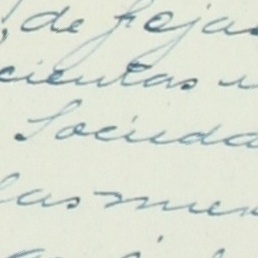 , de fojas
cientas u
Socieda
las nue